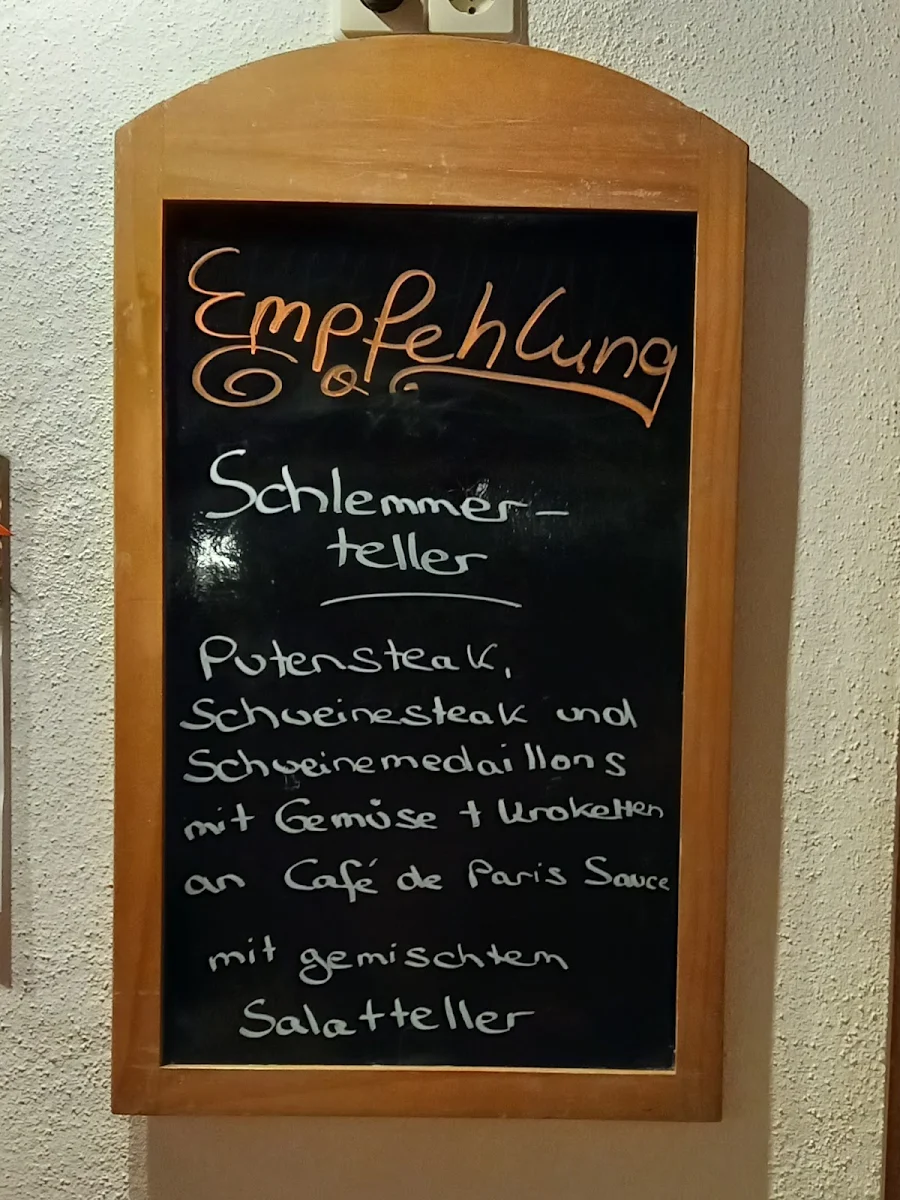 Empfehlung
Schlemmer-
teller
Putensteak,
Schweinesteak und
Schweinemedaillons
mit Gemüse + Kroketten
an Café de Paris Sauce
mit gemischtem
Salatteller